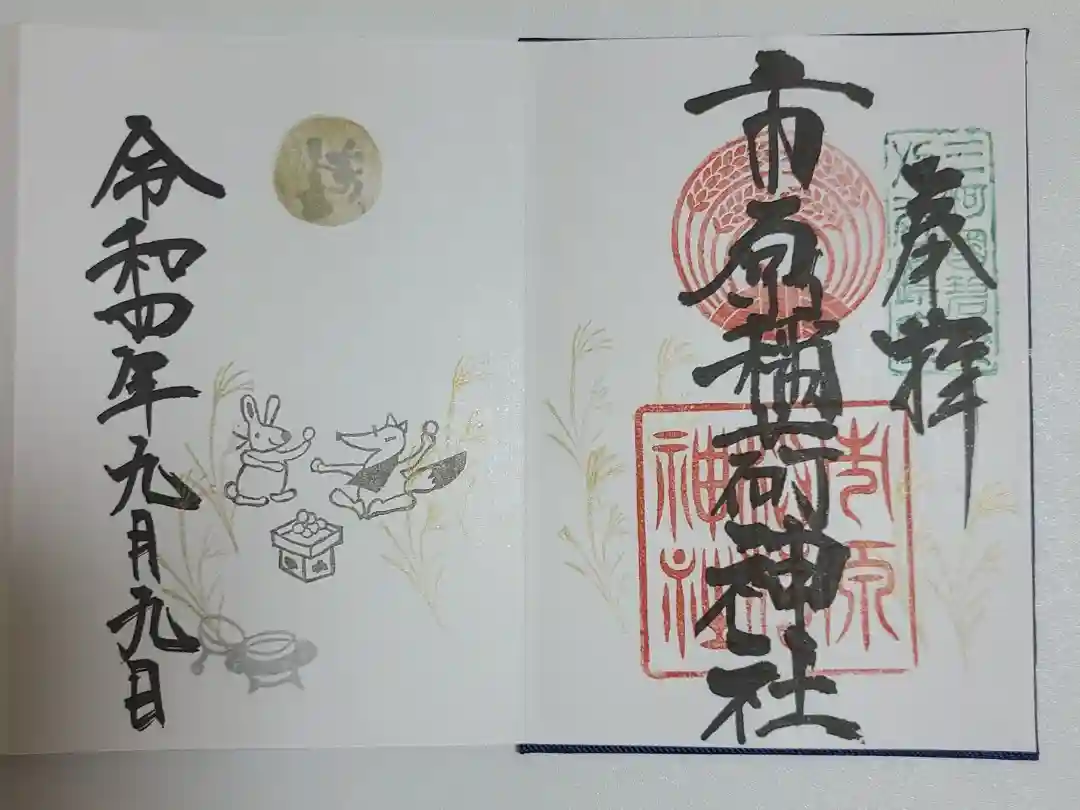 奉拝
市原稲荷神社
市原
稲荷
神社
令和四年九月九日